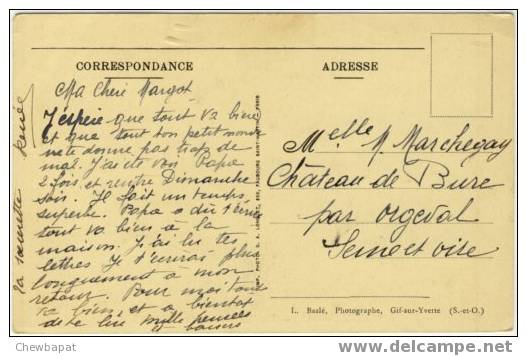 CORRESPONDANCE
Ma Chérie Margot
J'espère que tout va bien
et que tout ton petit monde
ne te donne pas trop de
mal. J'ai été voir Papa
2 fois et rentre Dimanche
soir. Il fait un temps
superbe. Papa a dû t'écrire
tout va bien à la
maison. J'ai lu tes
lettres. Je t'écrirai plus
longuement à mon
retour. Pour moi tout
va bien et à bientôt
de te lire mille pensées
et baisers
ta sœurette Renée
ADRESSE
Melle M. Marchegay
Château de Bure
par Orgeval
Seine et Oise
L. Baslé, Photographe, Gif-sur-Yvette (S.-et-O.)
© Chewbapat
delcampe.net